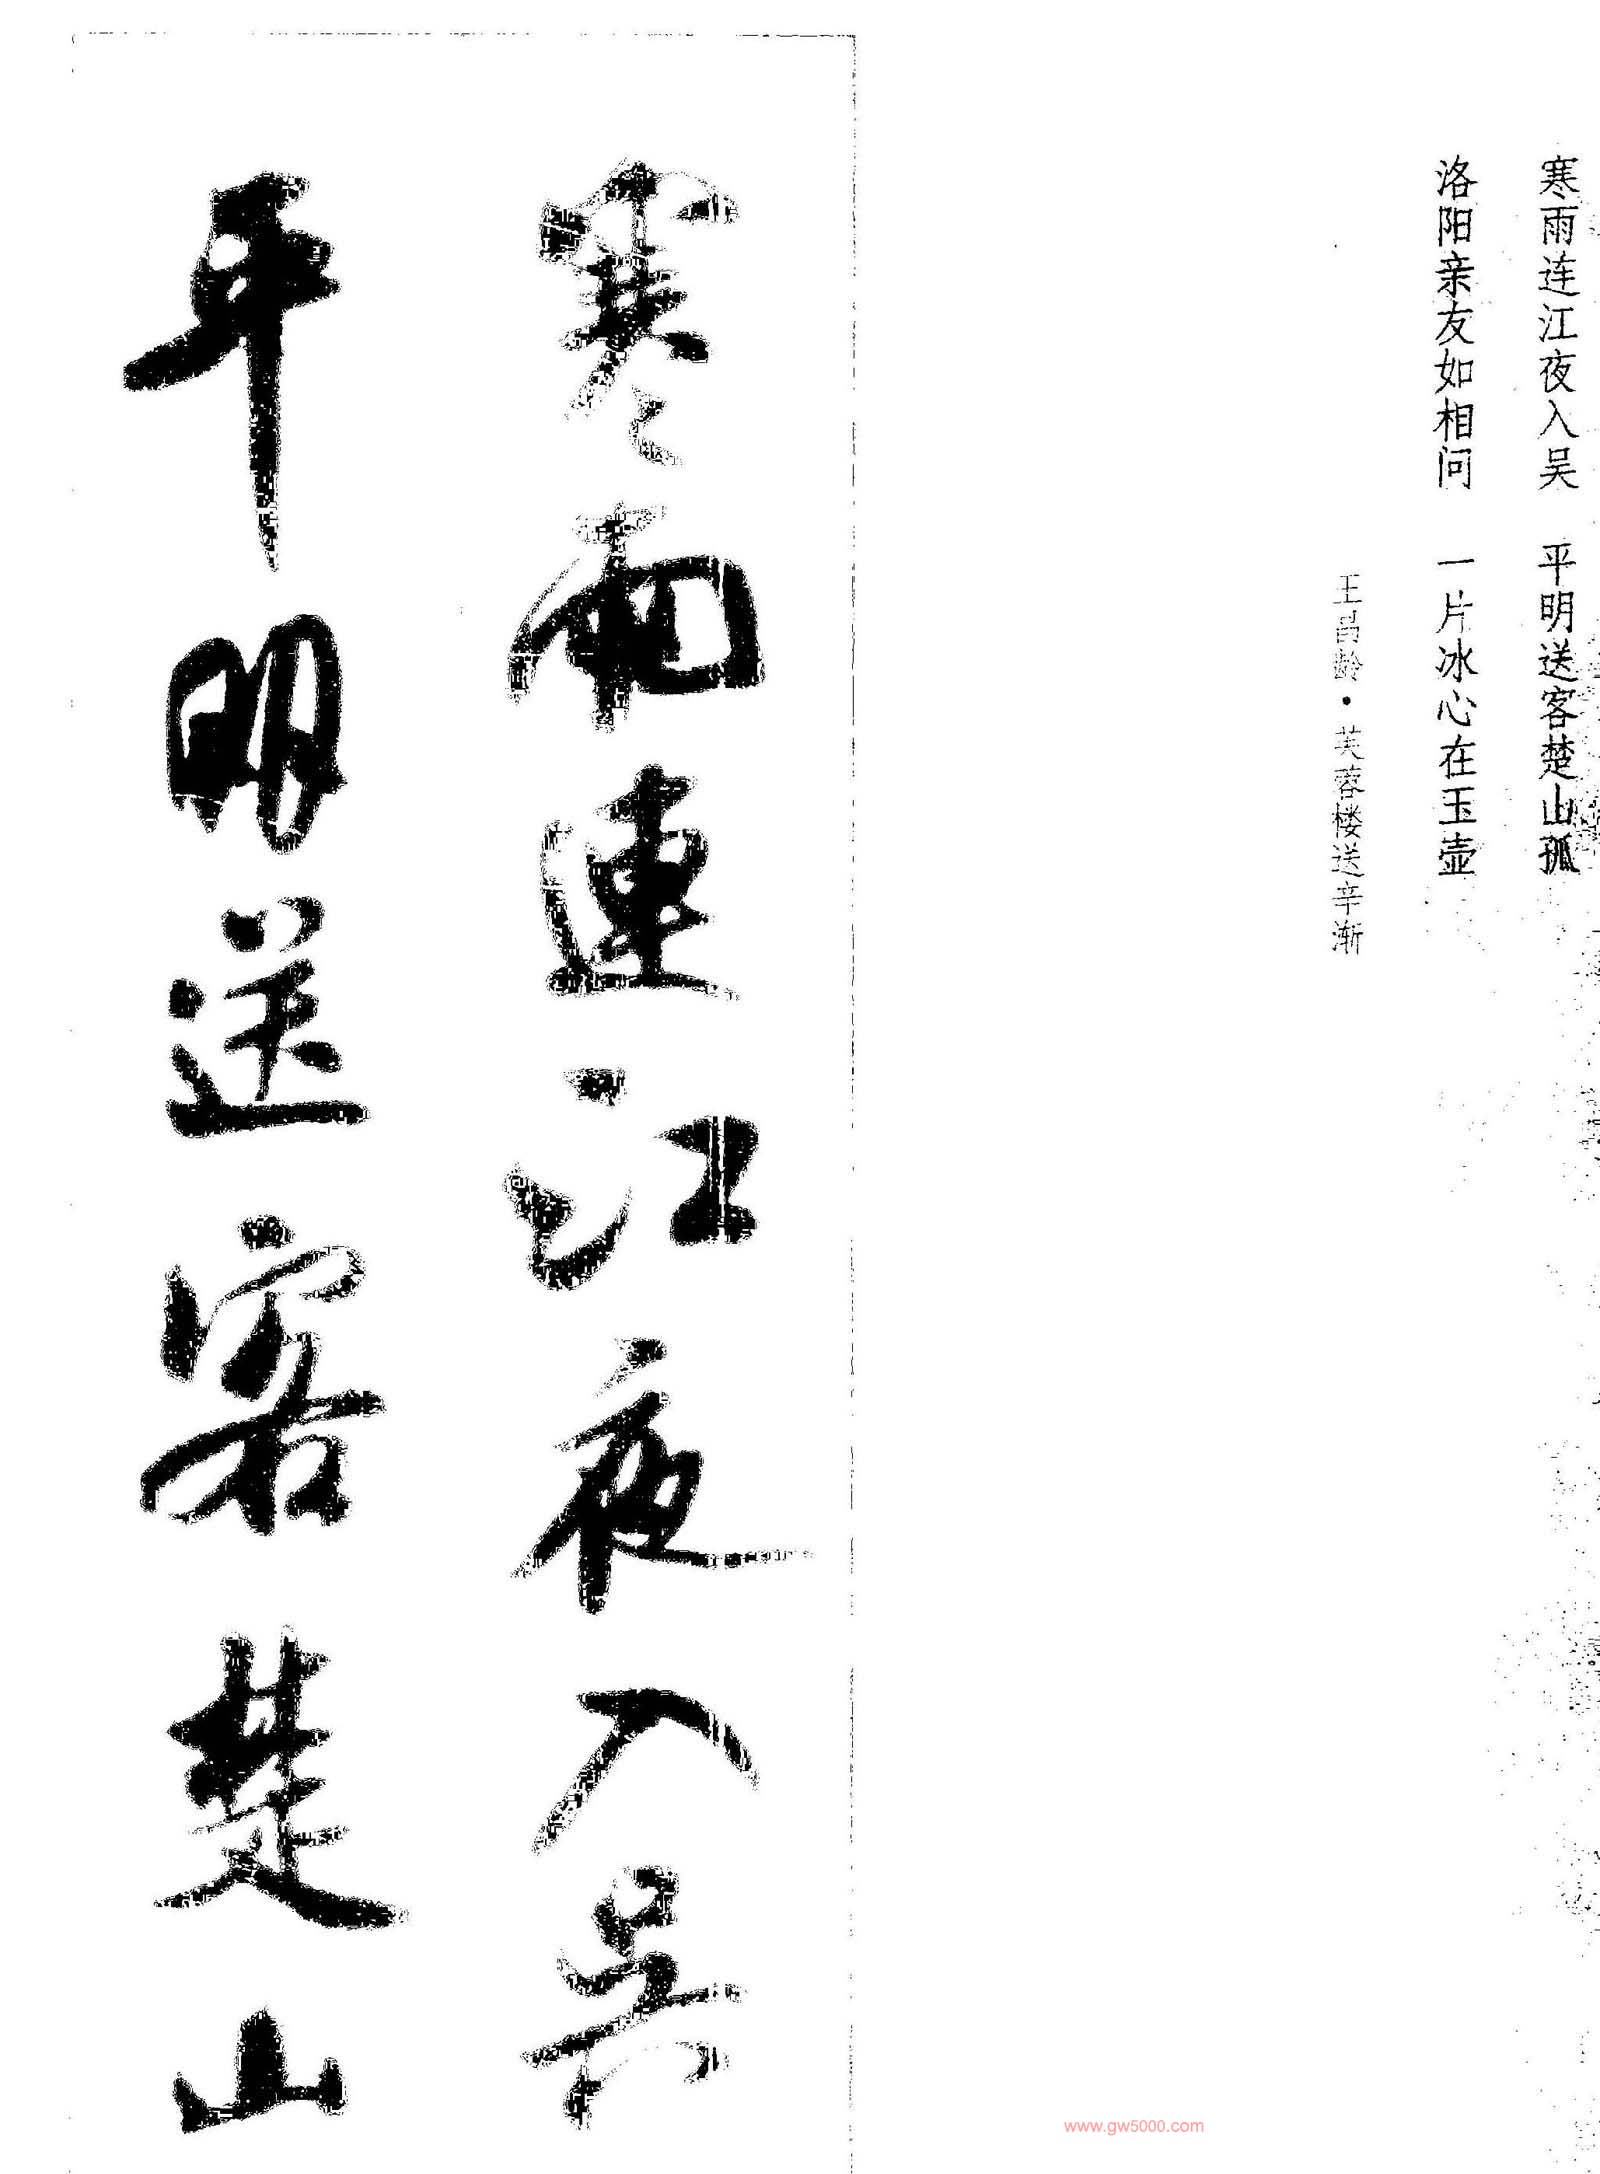 寒雨连江夜入吴　平明送客楚山孤
洛阳亲友如相问　一片冰心在玉壶
王昌龄·芙蓉楼送辛渐
寒雨連江夜入吴
平明送客楚山
www.gw5000.com